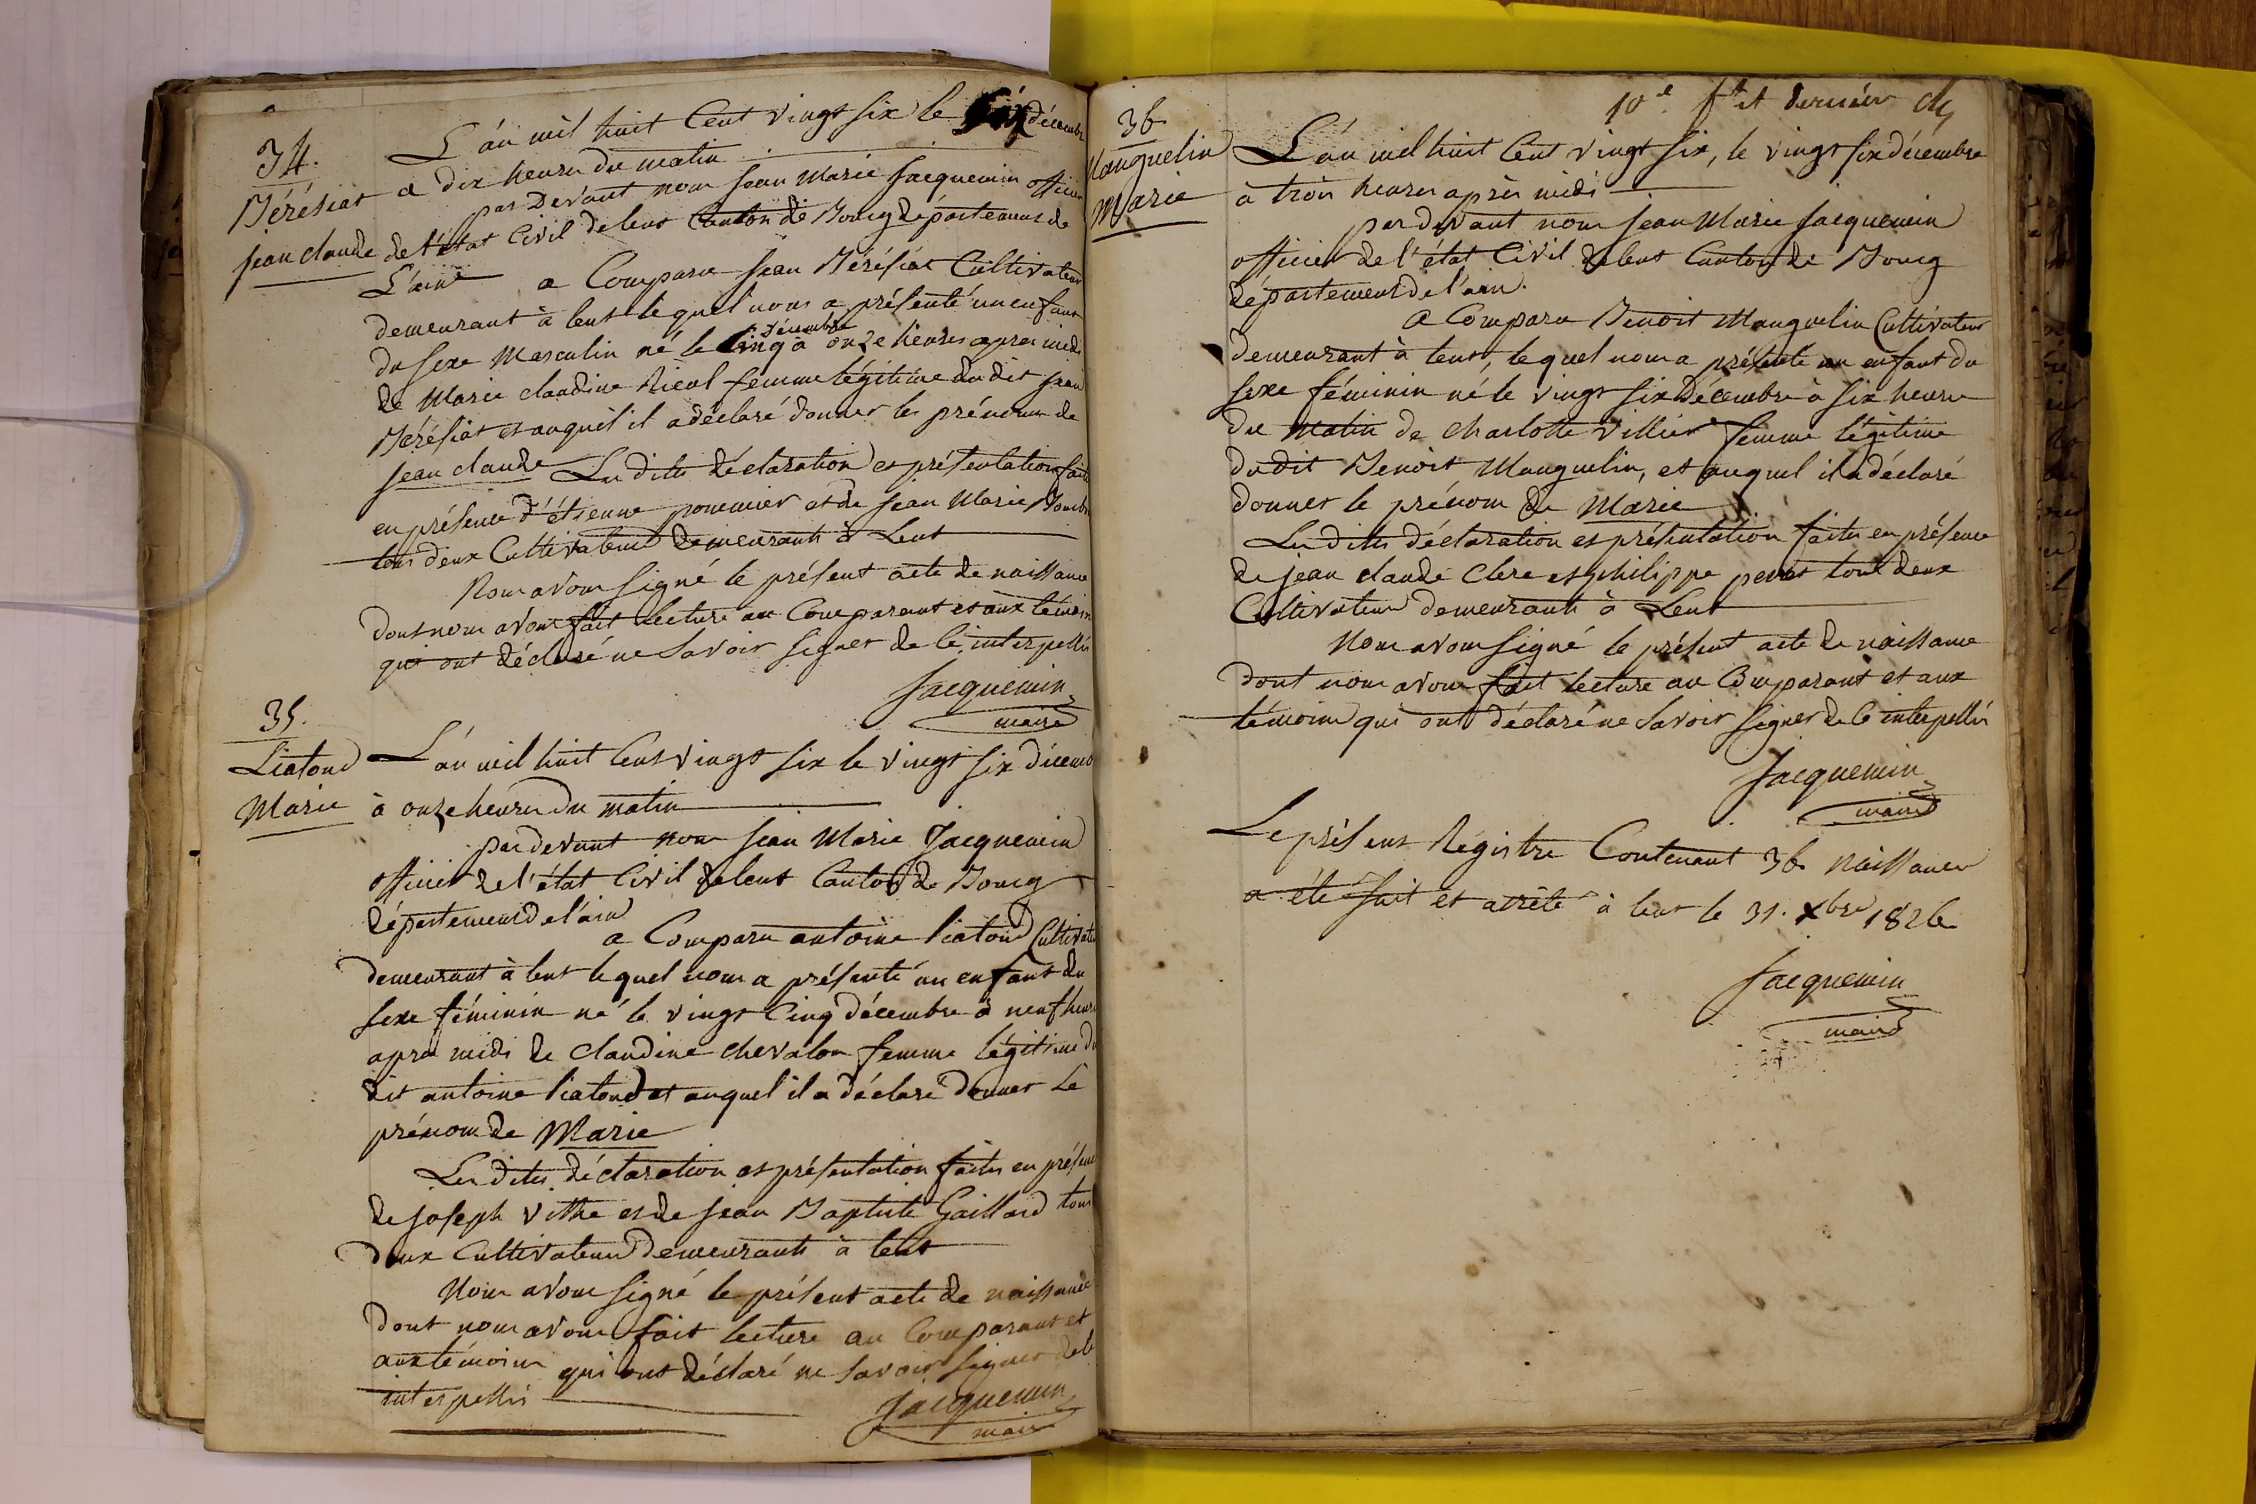 34.
Béréziat
jean claude
L'an mil huit Cent vingt six le six décembre
a dix heures du matin
par Devant nous Jean Marie Jacquemin officier
de l'état Civil de lent Canton de Bourg département de
L'ain a Comparu Jean Béréziat Cultivateur
demeurant à lent lequel nous a présenté un enfant
du sexe Masculin né le cinq décembre à onze heures apres midi
de Marie claudine Rieul femme légitime du dit jean
Béréziat et auquel il a déclaré donner les prénoms de
jean claude Les dites déclaration et présentation faites
en présence d'étienne pommier et de jean Marie
tous deux Cultivateurs demeurants à Lent
Nous avons signé le présent acte de naissance
dont nous avons fait lecture au Comparant et aux témoins
qui ont déclaré ne savoir signer de ce interpellés
Jacquemin
maire
35.
Liatoud
Marie
L'an mil huit Cent vingt six le vingt six décemb
à onze heures du matin
par devant nous jean Marie Jacquemin
officier de l'état Civil de lent Canton de Bourg
département de l'ain
a Comparu antoine liatoud Cultivate
demeurant à lent lequel nous a présenté un enfant du
sexe féminin né le vingt cinq décembre à neuf heures
apres midi de claudine chevalon femme légitime du
dit antoine liatoud et auquel il a déclaré donner Le
prénom de Marie
Les dites déclaration et présentation faites en présence
de joseph vithe et de jean Baptiste Gaillard tous
deux Cultivateurs demeurants à lent
Nous avons signé le présent acte de naissance
dont nous avons fait lecture au Comparant et
aux témoins qui ont déclaré ne savoir signer de ce
interpellés
Jacquemin
maire
10e. ft et dernier
36
Manguelin
Marie
L'an mil huit Cent vingt six, le vingt six décembre
à trois heures après midi
par devant nous jean Marie Jacquemin
officier de l'état Civil de lent Canton de Bourg
département de l'ain.
a Comparu Benoit Manguelin Cultivateur
demeurant à lent, lequel nous a présenté un enfant du
sexe féminin né le vingt six Décembre à six heures
du matin de charlotte villier femme légitime
du dit Benoit Manguelin, et auquel il a déclaré
donner le prénom de Marie
Les dites déclaration et présentation faites en présence
de jean claude Clere et philippe peret tous deux
Cultivateurs demeurants à Lent
Nous avons signé le présent acte de naissance
dont nous avons fait lecture au Comparant et aux
témoins qui ont déclaré ne savoir signer de ce interpellés
Jacquemin
maire
Le présent Régistre Contenant 36 naissances
a été fait et arrêté à lent le 31. xbre 1826
Jacquemin
maire